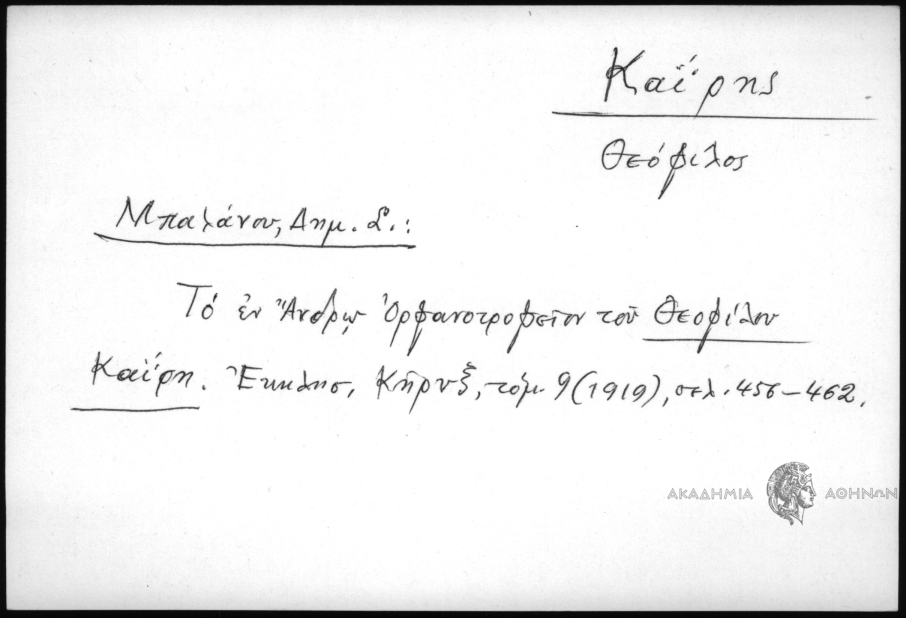 Καΐρης
Θεόφιλος
Μπαλάνου, Δημ. Σ.:
Τό ἐν Ἄνδρῳ Ὀρφανοτροφεῖον τοῦ Θεοφίλου
Καΐρη. Ἐκκλησ. Κῆρυξ, τόμ. 9 (1919), σελ. 456-462.
ΑΚΑΔΗΜΙΑ ΑΘΗΝΩΝ